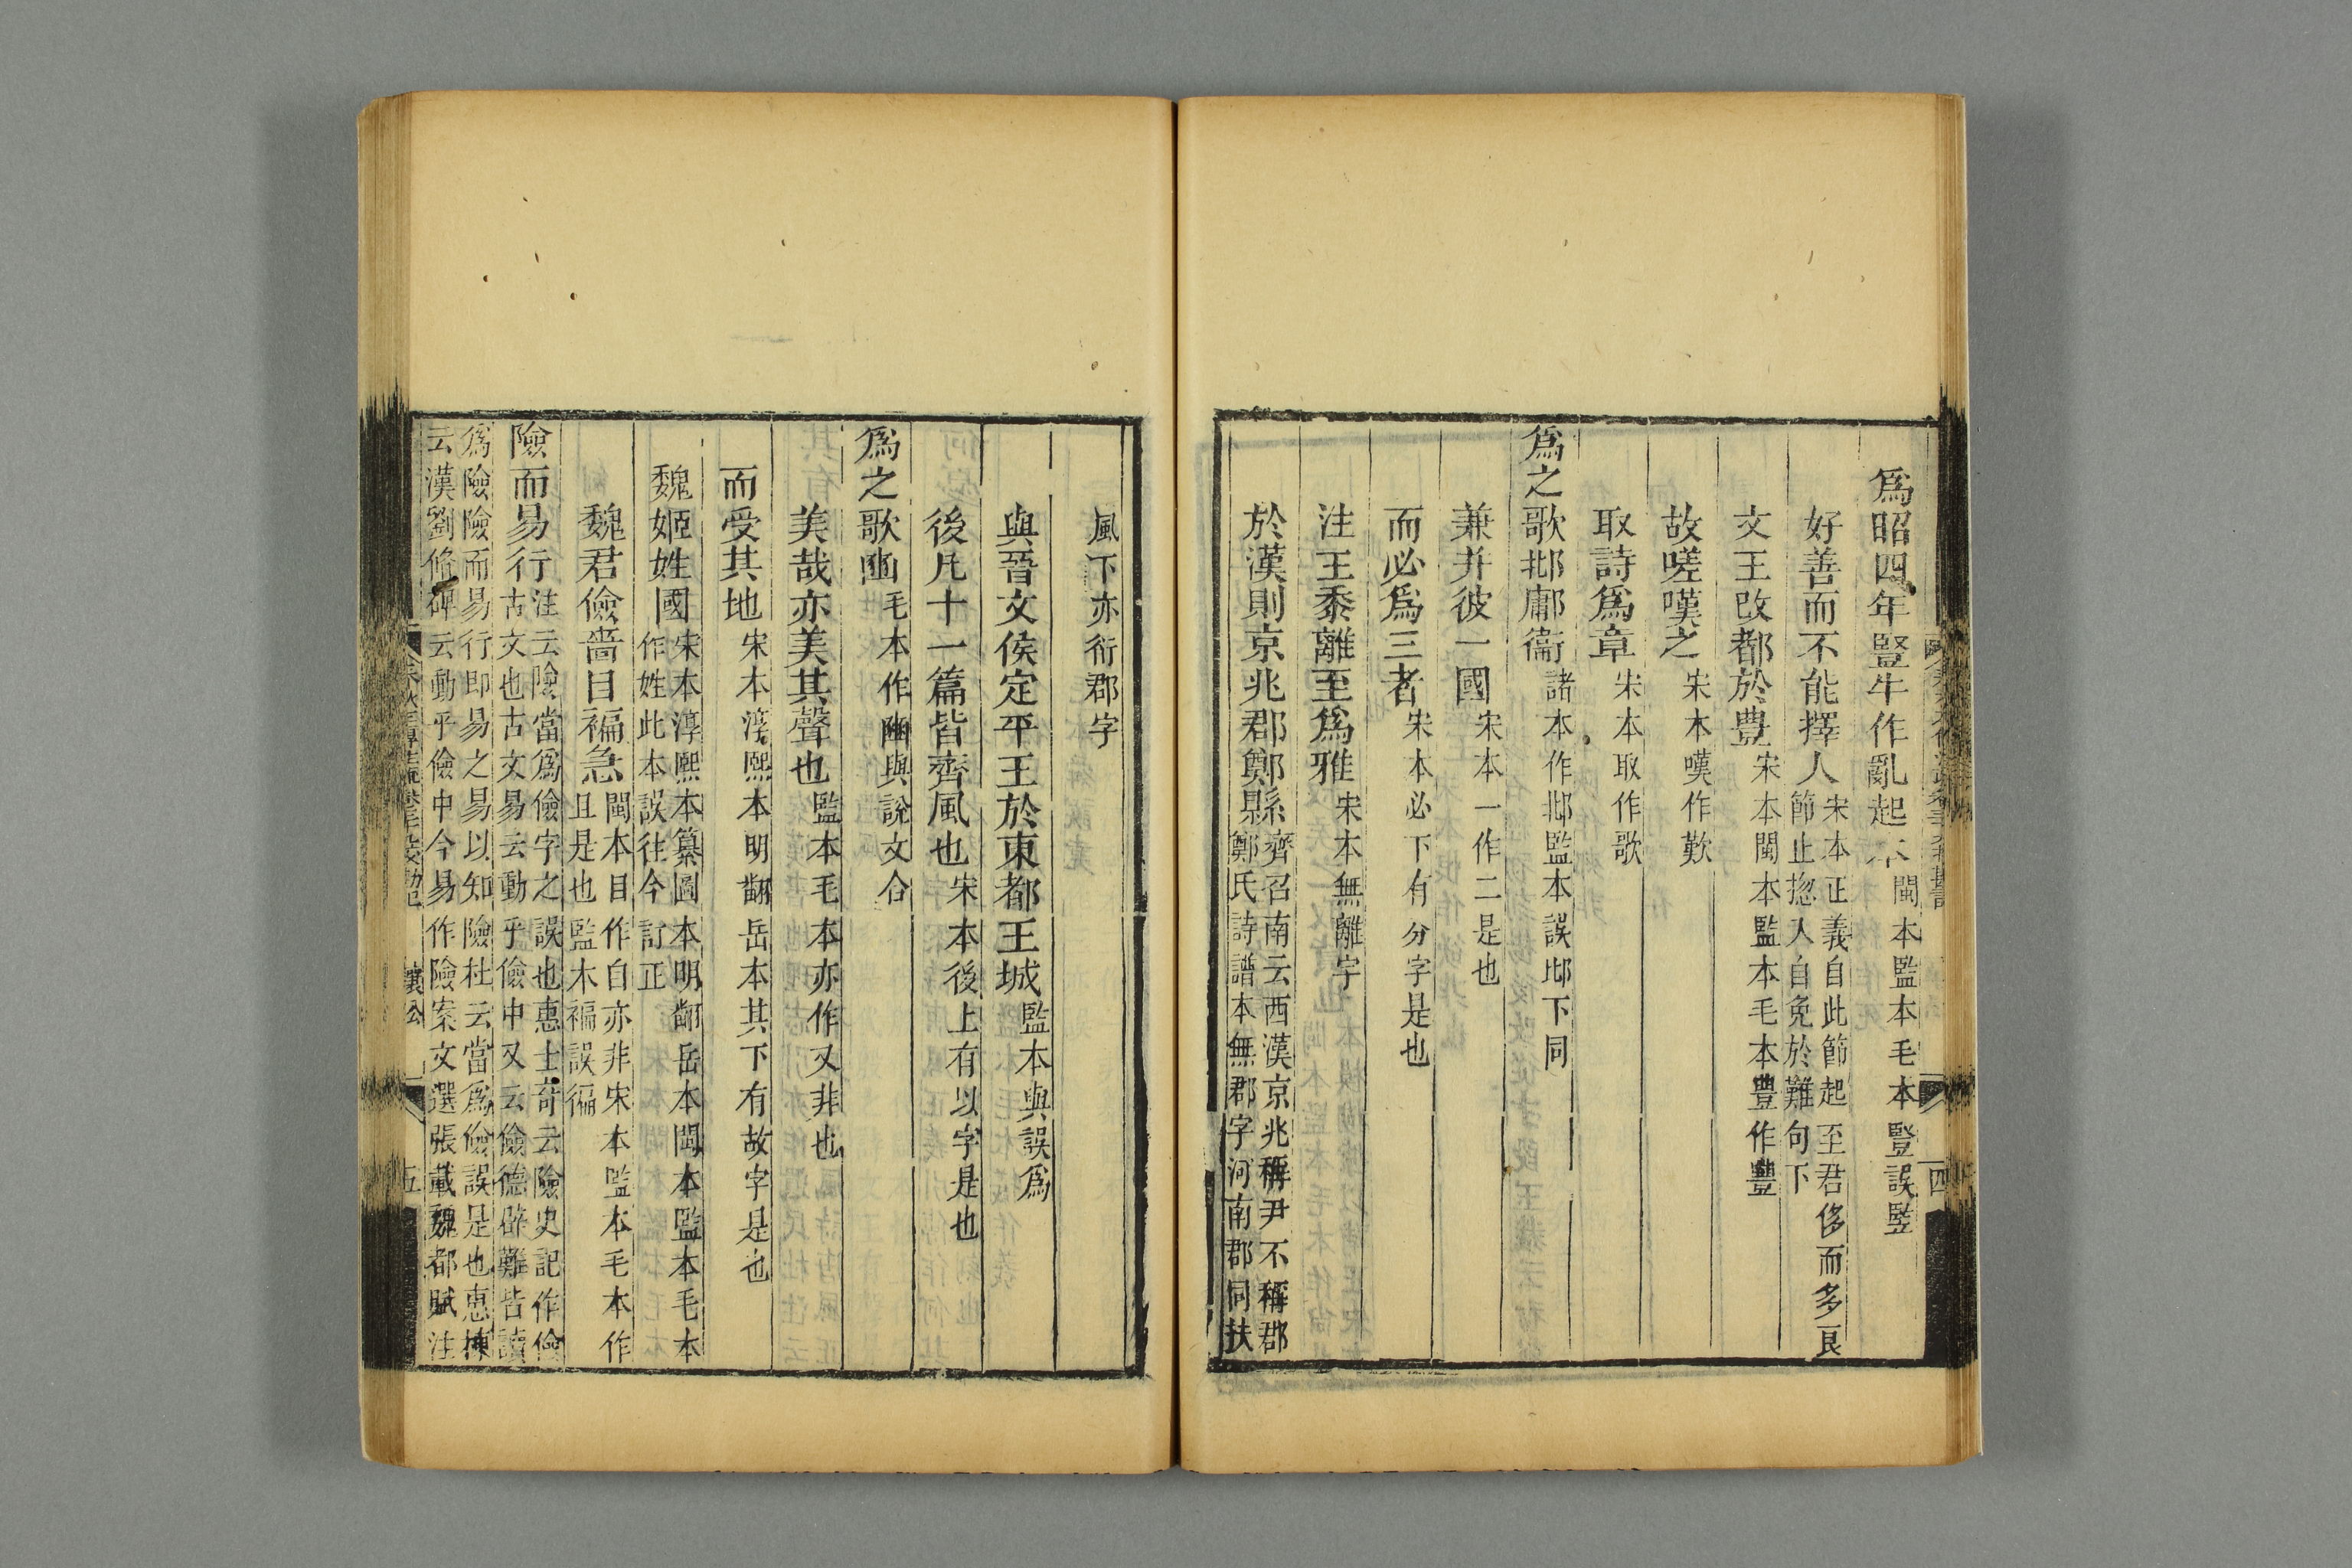 爲昭四年豎牛作亂起本閩本監本毛本豎誤竪
好善而不能擇人宋本正義自此節起至君侈而多良
節止揔入自免於難句下
文王改都於豊宋本閩本監本毛本豊作豐
故嗟嘆之宋本嘆作歎
取詩爲章宋本取作歌
爲之歌邶鄘衞諸本作邶監本誤邶下同
兼并彼一國宋本一作二是也
而必爲三者宋本必下有分字是也
注王黍離至爲雅宋本無離字
於漢則京兆郡鄭縣齊召南云西漢京兆稱尹不稱郡
鄭氏詩譜本無郡字河南郡同扶
四
風下亦衍郡字
與晉文侯定平王於東都王城監本與誤爲
後凡十一篇皆齊風也宋本後上有以字是也
爲之歌豳毛本作豳與說文合
美哉亦美其聲也監本毛本亦作又非也
而受其地宋本淳熙本明翻岳本其下有故字是也
魏姬姓國宋本淳熙本纂圖本明翻岳本閩本監本毛本
作姓此本誤往今訂正
魏君儉嗇目褊急閩本目作白亦非宋本監本毛本作
且是也監本褊誤徧
險而易行注云險當爲儉字之誤也惠士奇云險史記作儉
古文也古文易云動乎儉中又云儉德辟難皆讀
爲險險而易行即易之易以知險杜云當爲儉誤是也惠棟
云漢劉脩碑云動乎儉中今易作險案文選張載魏都賦注
春秋左傳注疏卷三十九挍勘記 襄公 五